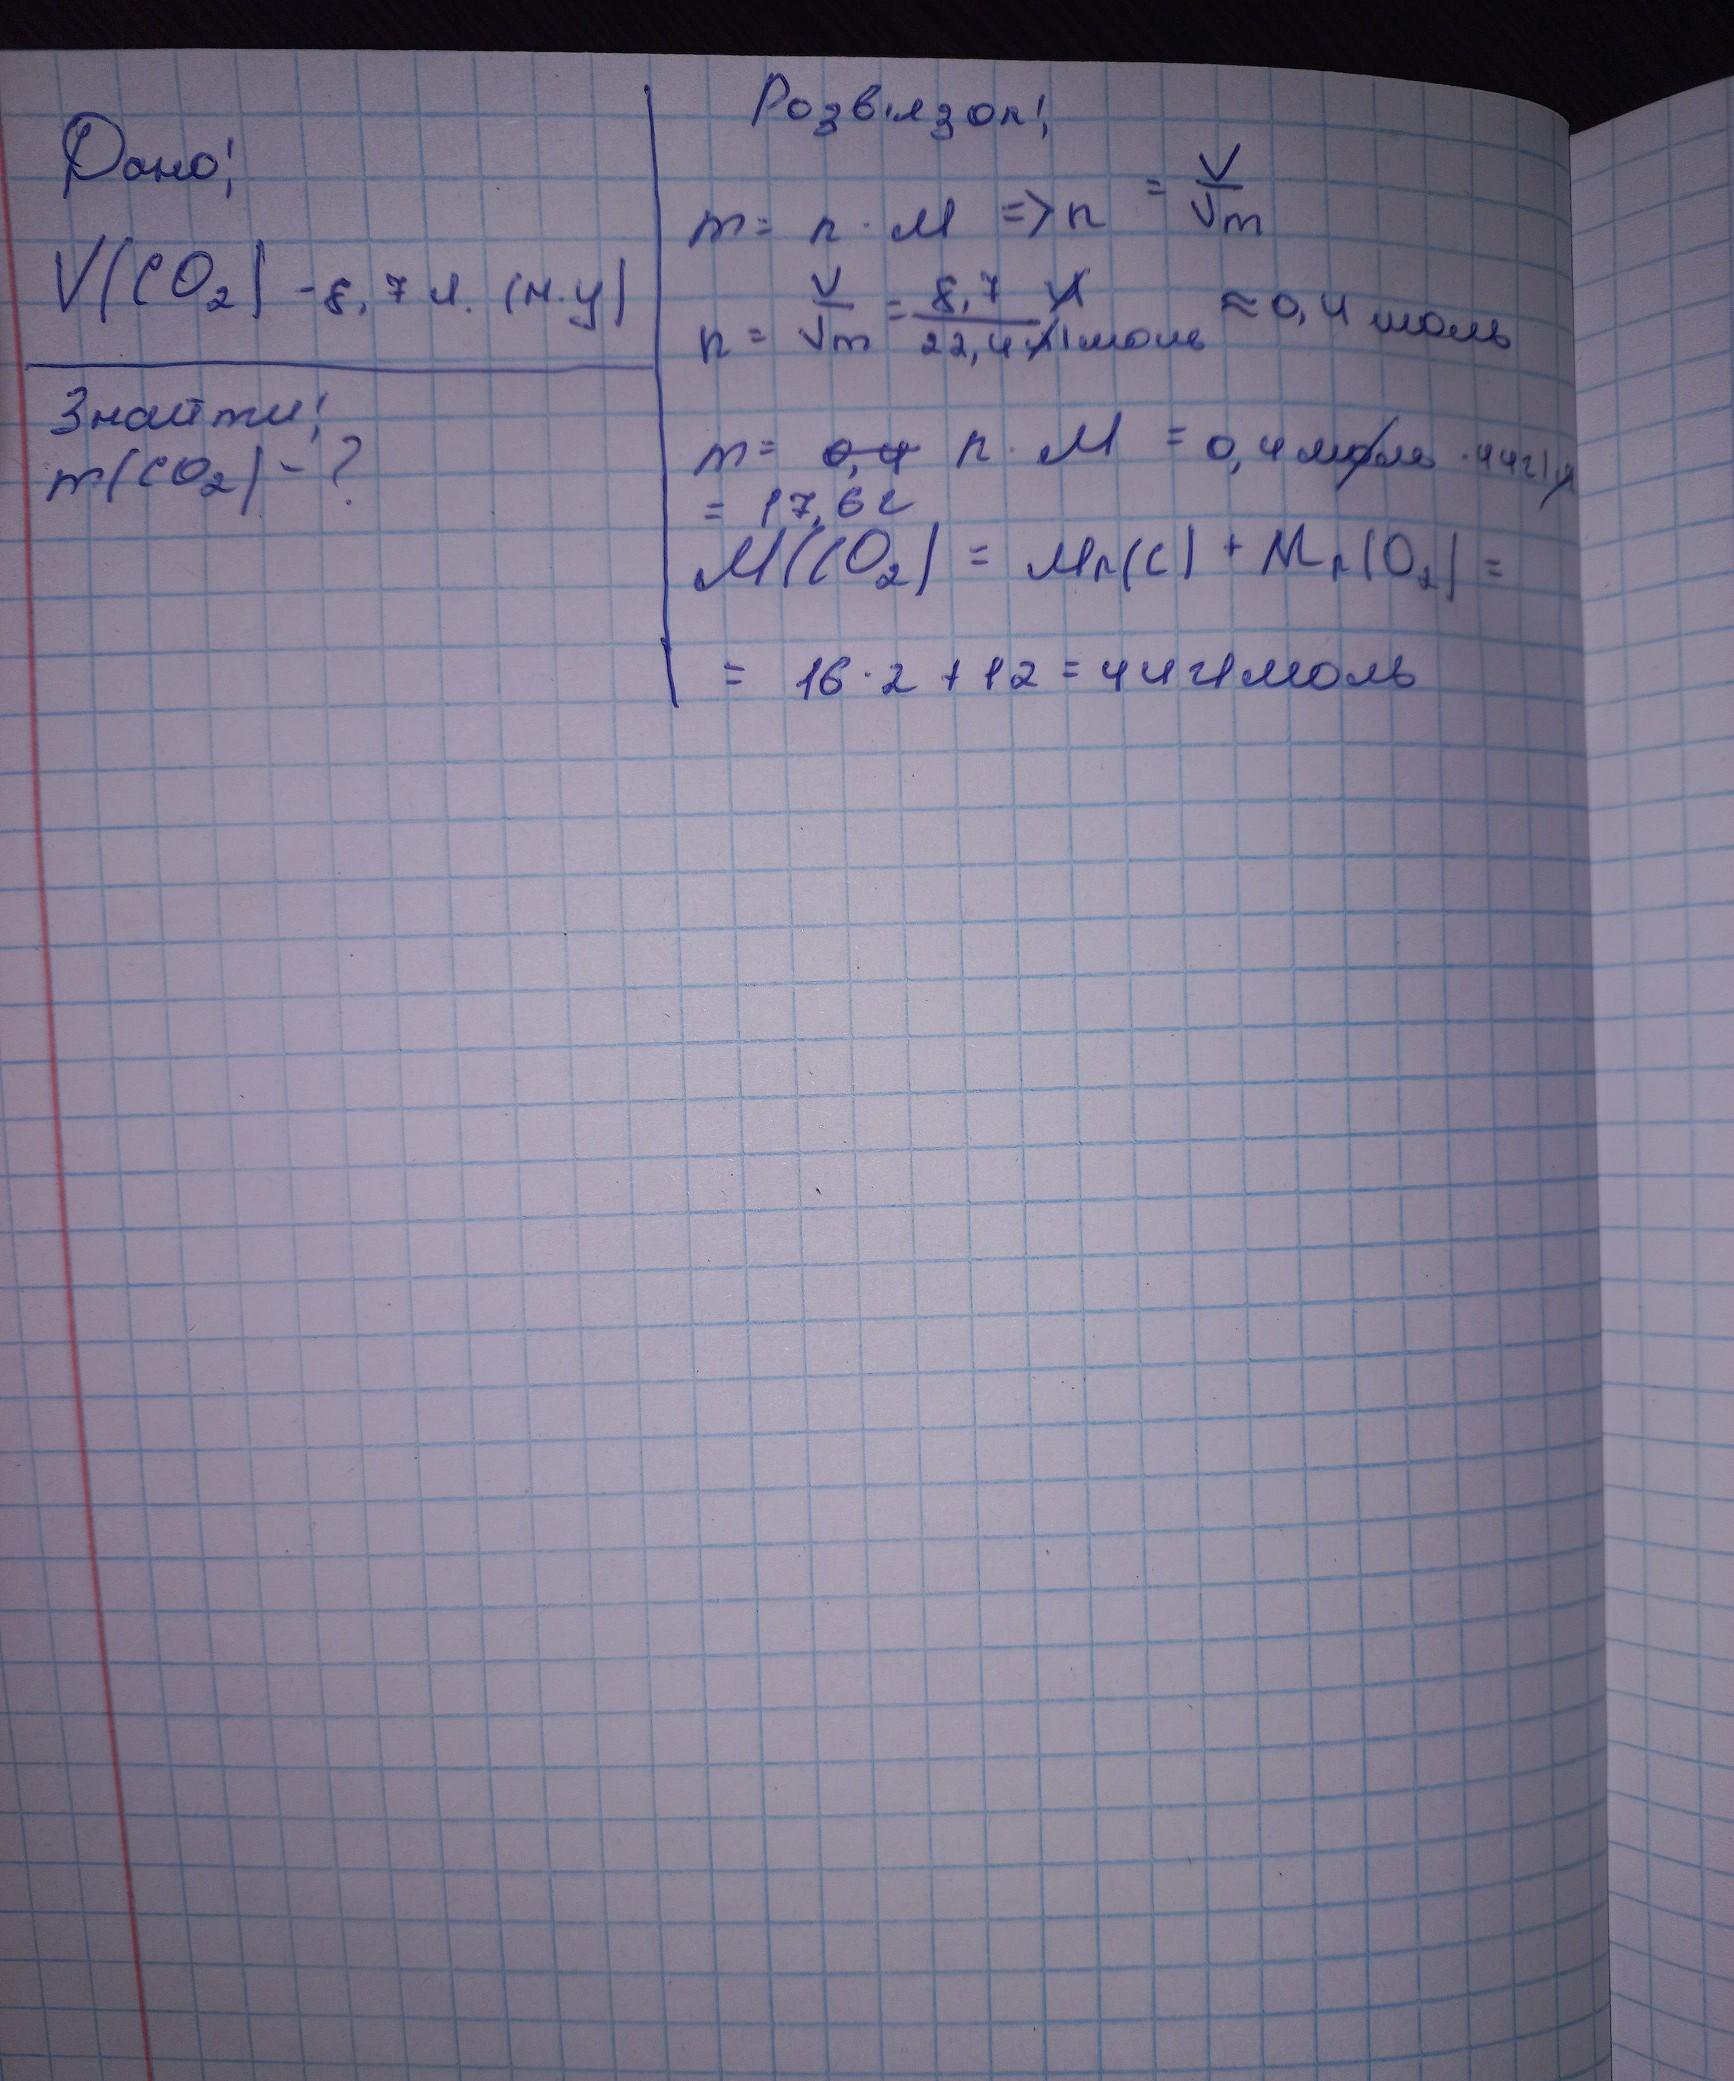 Дано:
V(CO₂) - 8,7 л. (н.у)
Знайти:
m(CO₂) - ?
Розв'язок:
m = n · M => n = V/Vm
n = V/Vm = 8,7 л/22,4 л/моль ≈ 0,4 моль
m = 0,4 n · M = 0,4 моль · 44г/
= 17,6г
M(CO₂) = Mr(C) + Mr(O₂) =
= 16·2 + 12 = 44 г/моль